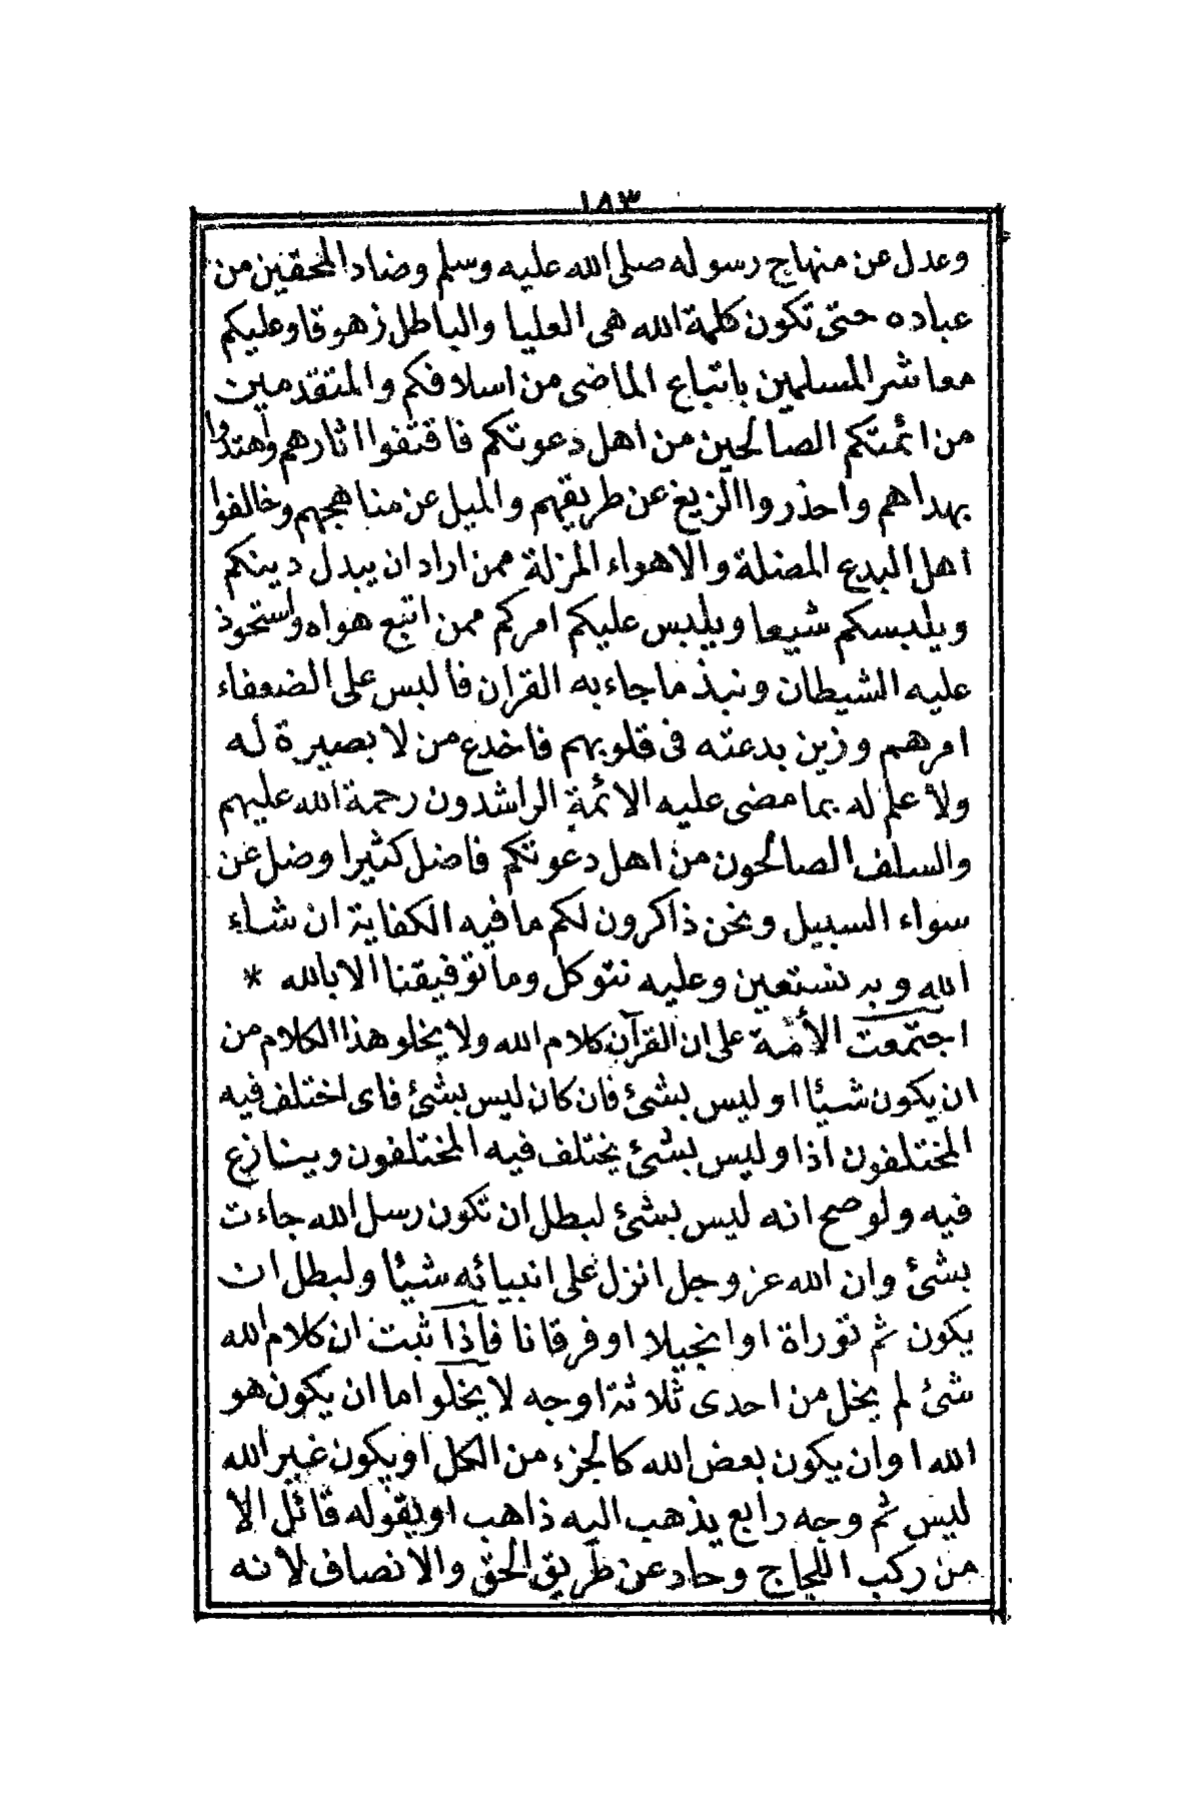 ١٨٣
وعدل عن منهاج رسوله صلى الله عليه وسلم وضاد المحقين من
عباده حتى تكون كلمة الله هى العليا والباطل زهوقا وعليكم
معاشر المسلمين باتباع الماضى من اسلافكم والمتقدمين
من ائمتكم الصالحين من اهل دعوتكم فاقتفوا اثارهم واهتدوا
بهداهم واحذروا الزيغ عن طريقهم والميل عن مناهجهم وخالفوا
اهل البدع المضلة والاهواء المزلة ممن اراد ان يبدل دينكم
ويلبسكم شيعا ويلبس عليكم امركم ممن اتبع هواه واستحوذ
عليه الشيطان ونبذ ما جاء به القران فالبس على الضعفاء
امرهم وزين بدعته فى قلوبهم فاخدع من لا بصيرة له
ولا علم له بما مضى عليه الائمة الراشدون رحمة الله عليهم
والسلف الصالحون من اهل دعوتكم فاضل كثيرا وضل عن
سواء السبيل ونحن ذاكرون لكم ما فيه الكفاية ان شاء
الله وبه نستعين وعليه نتوكل وما توفيقنا الا بالله *
اجتمعت الأمة على ان القرآن كلام الله ولا يخلو هذا الكلام من
ان يكون شيئا او ليس بشئ فان كان ليس بشئ فاى اختلف فيه
المختلفون اذا وليس بشئ يختلف فيه المختلفون ويتنازع
فيه ولو صح انه ليس بشئ لبطل ان تكون رسل الله جاءت
بشئ وان الله عز وجل انزل على انبيائه شيئا ولبطل ان
يكون ثم توراة او انجيلا او فرقانا فاذا ثبت ان كلام الله
شئ لم يخل من احدى ثلاثة اوجه لا يخلو اما ان يكون هو
الله او ان يكون بعض الله كالجزء من الكل او يكون غير الله
ليس ثم وجه رابع يذهب اليه ذاهب او يقوله قائل الا
من ركب اللجاج وحاد عن طريق الحق والانصاف لانه